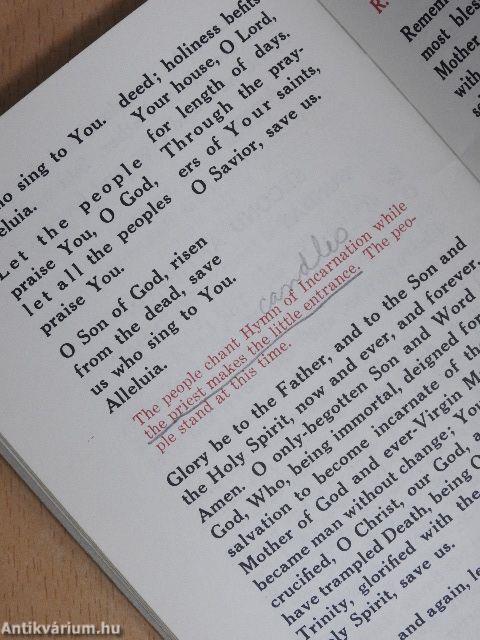 sing to You.
eluia.
Let the people
praise You, O God,
let all the peoples
praise You.
O Son of God, risen
from the dead, save
us who sing to You.
Alleluia.
deed; holiness befits
Your house, O Lord,
for length of days.
Through the pray-
ers of Your saints,
O Savior, save us.
candles
The people chant Hymn of Incarnation while
the priest makes the little entrance. The peo-
ple stand at this time.
Glory be to the Father, and to the Son and
the Holy Spirit, now and ever, and forever.
Amen. O only-begotten Son and Word
God, Who, being immortal, deigned for
salvation to become incarnate of the
Mother of God and ever-Virgin
became man without change; You
crucified, O Christ, our God,
have trampled Death, being
Trinity, glorified with the
Holy Spirit, save us.
and again,
R.
Remem
most bles
Mother
with
Antikvárium.hu